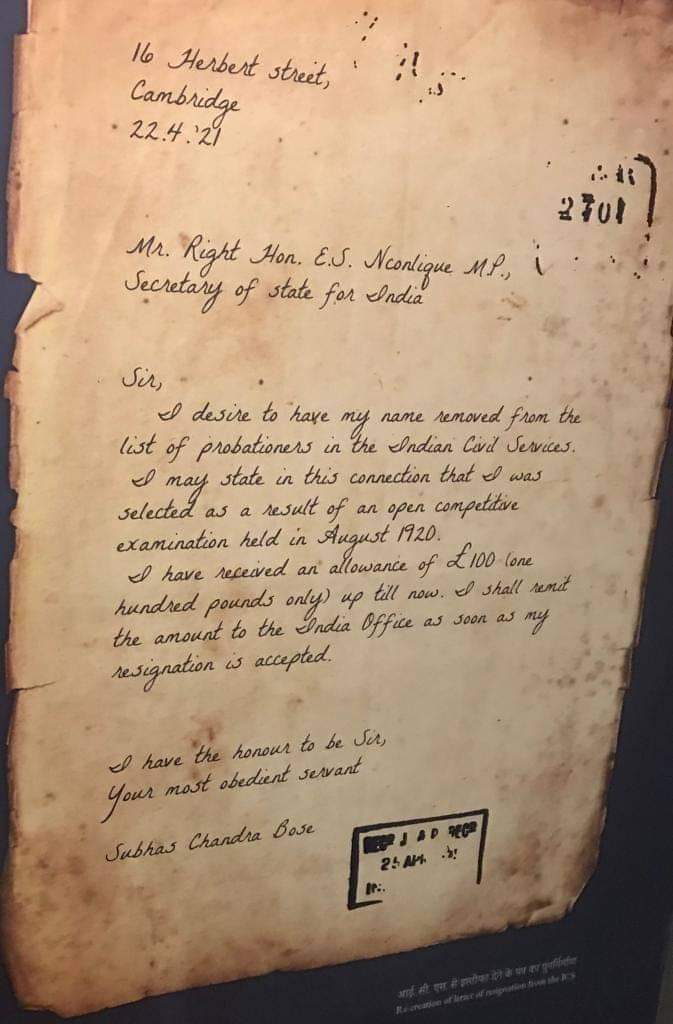 16 Herbert street,
Cambridge
22.4.'21
2701
Mr. Right Hon. E.S. Nconlique M.P.,
Secretary of state for India
Sir,
I desire to have my name removed from the
list of probationers in the Indian Civil Services.
I may state in this connection that I was
selected as a result of an open competitive
examination held in August 1920.
I have received an allowance of £100 (one
hundred pounds only) up till now. I shall remit
the amount to the India Office as soon as my
resignation is accepted.
I have the honour to be Sir,
Your most obedient servant
Subhas Chandra Bose
J & P
25 AP
आई. सी. एस. से इस्तीफा देने के पत्र का पुनर्निर्माण
Re-creation of letter of resignation from the ICS